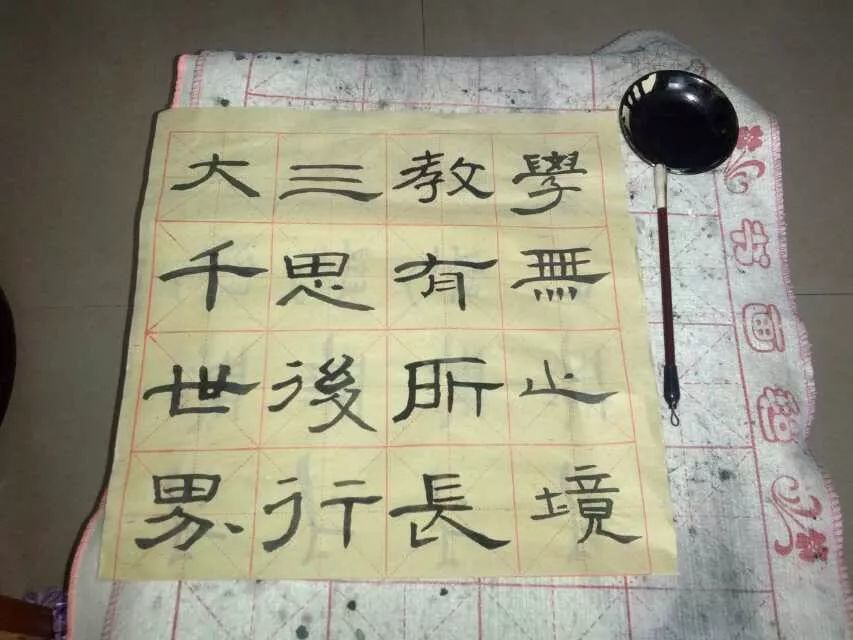 學無止境
教有所長
三思後行
大千世界
书画毡